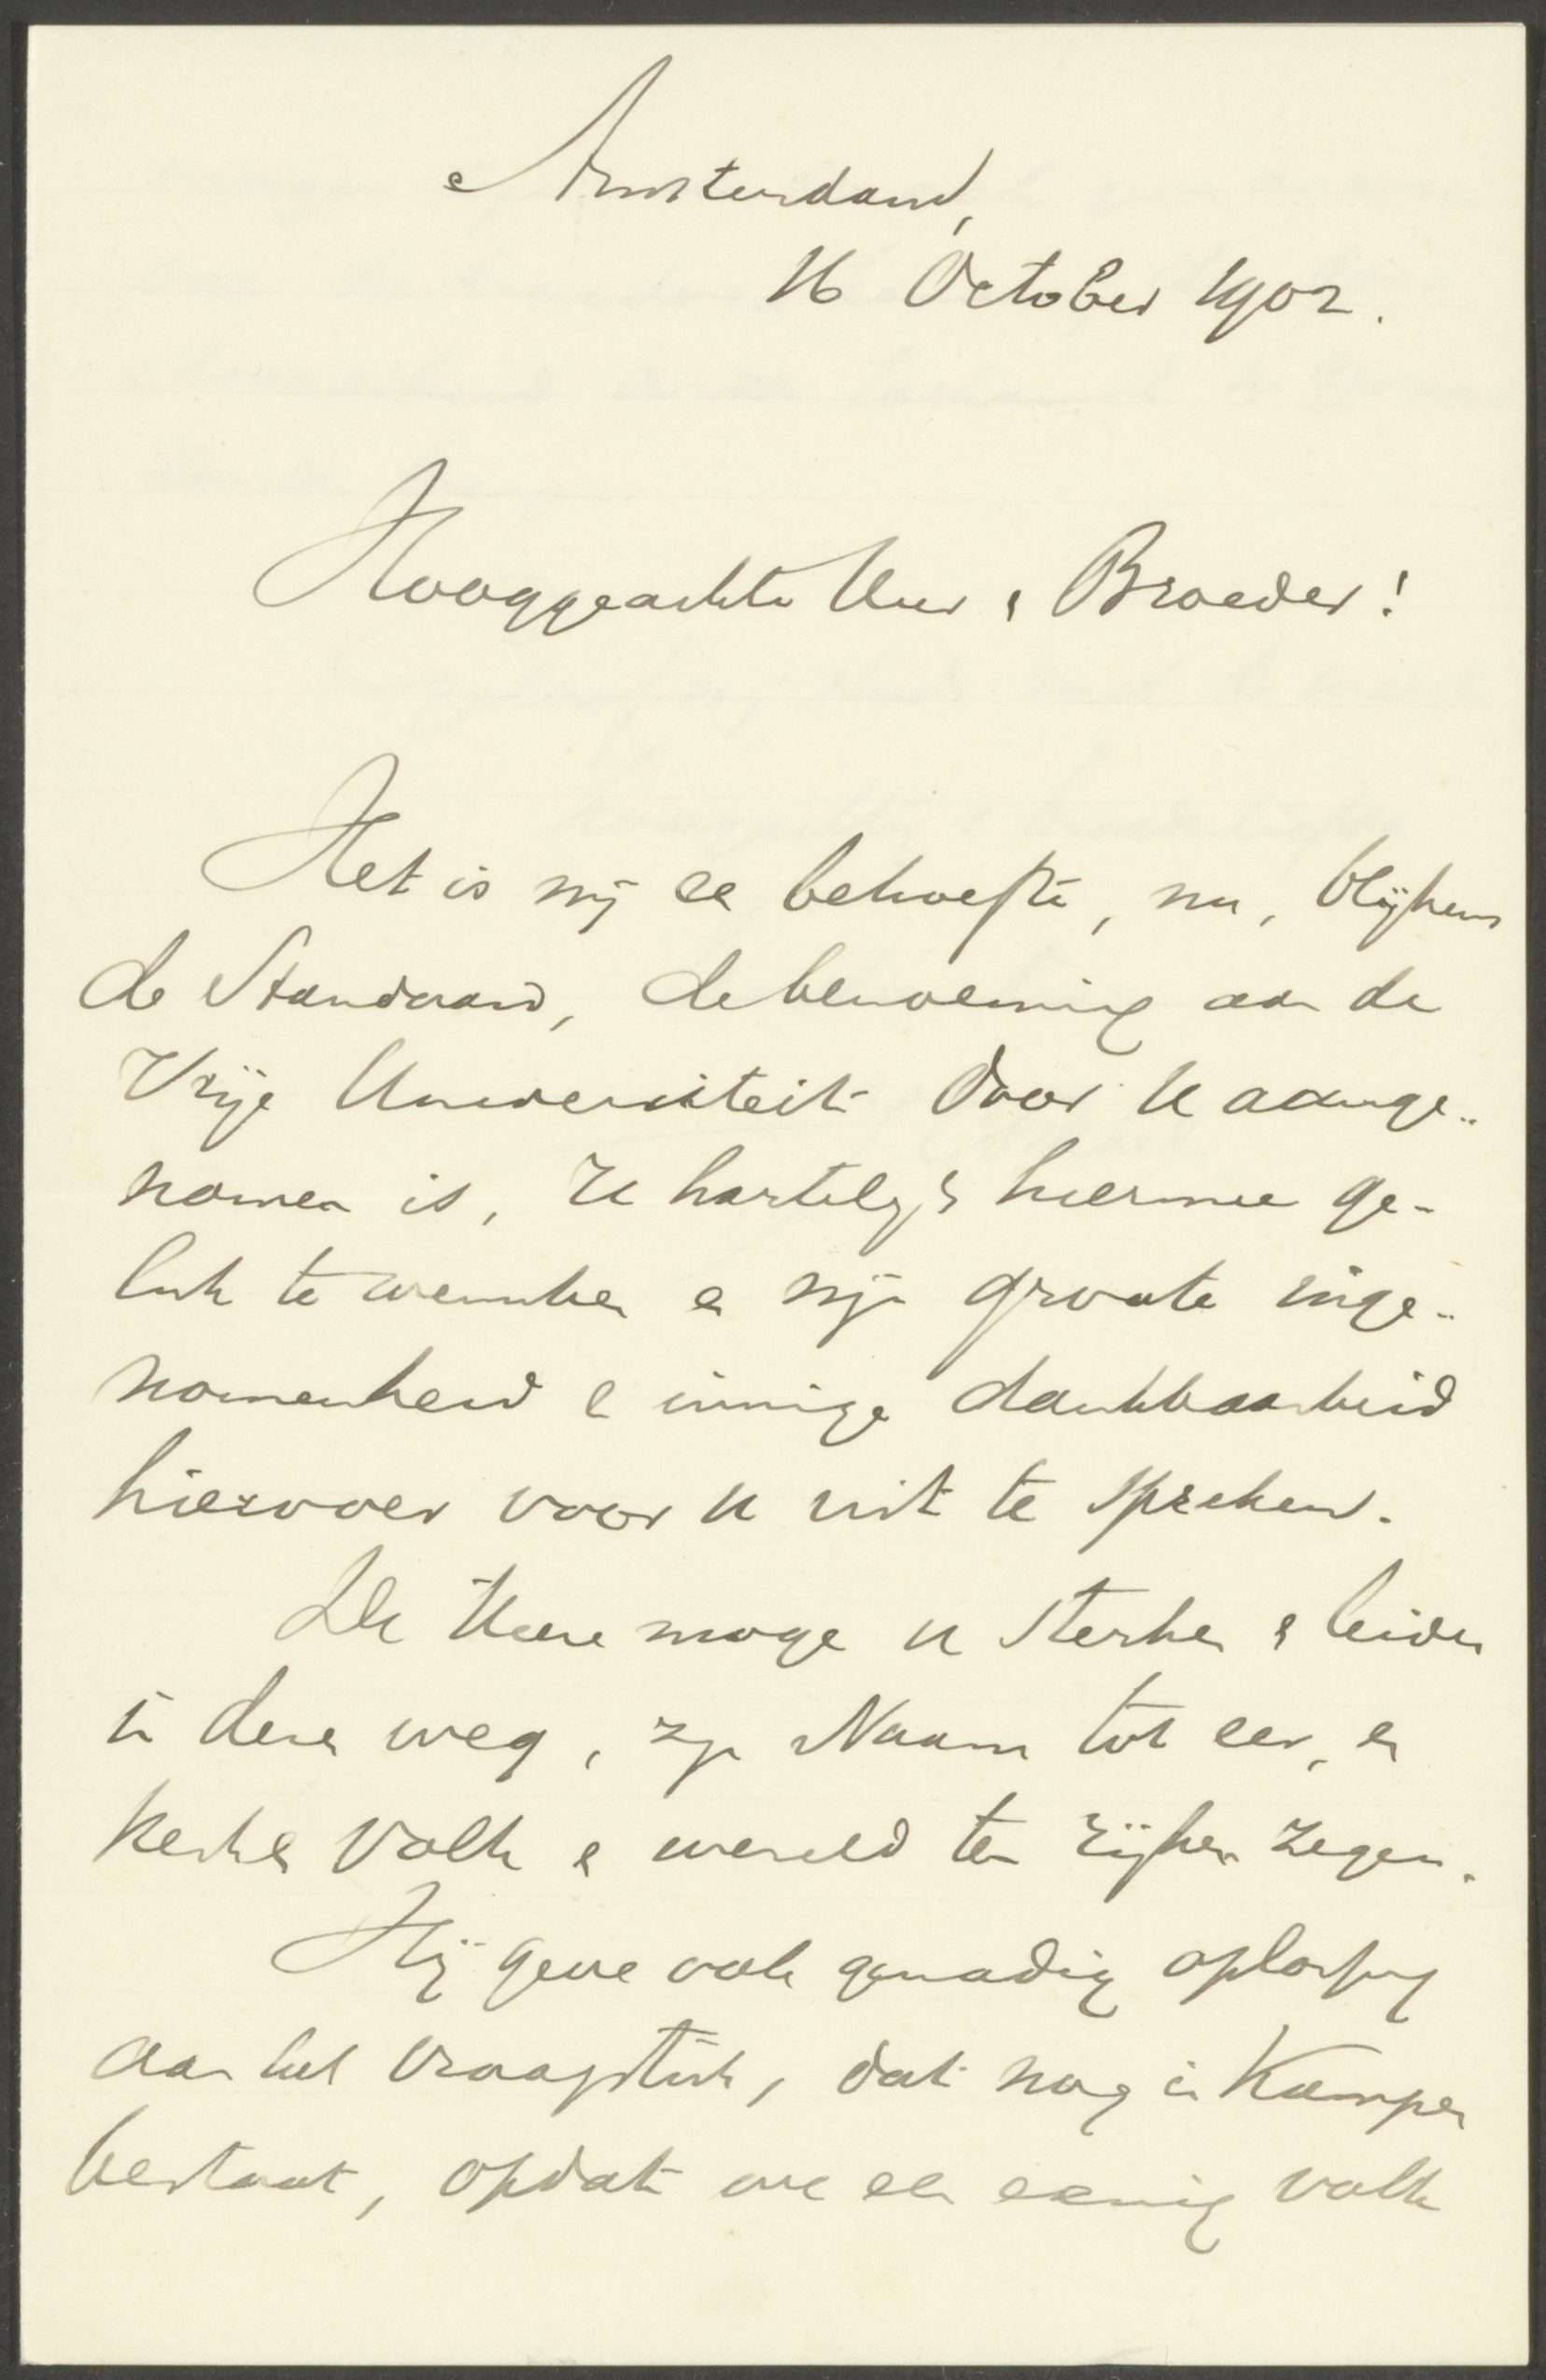 Amsterdam,
16 October 1902.
Hooggeachte Heer & Broeder!
Het is mij een behoefte, nu, blijkens
de Standaard, de benoeming aan de
Vrije Universiteit door U aange-
nomen is, U hartelijk hiermee ge-
luk te wenschen en mijn groote inge-
nomenheid & innige dankbaarheid
hierover voor u uit te spreken.
De Heere moge u sterken & leiden
in deze weg, zijn Naam tot eer, en
kerk & volk & wereld ten rijken zegen.
Hij geve ook genadig oplossing
aan het vraagstuk, dat nog in Kampen
bestaat, opdat we een eenig volk